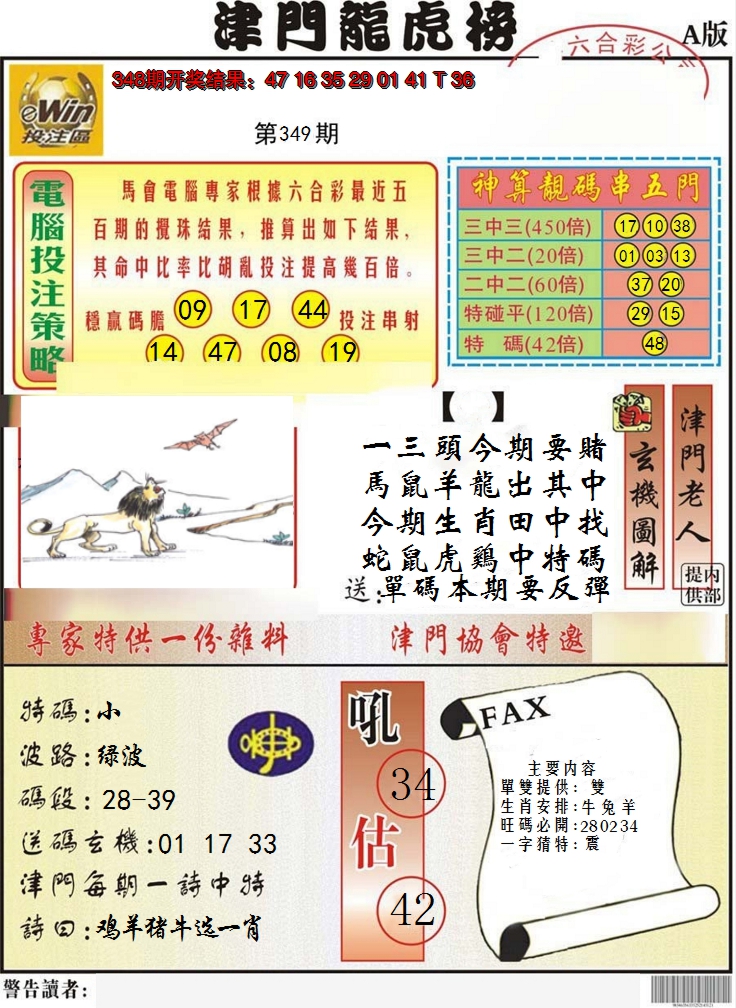 津門龍虎榜
六合彩公
A版
348期开奖结果：47 16 35 29 01 41 T 36
eWin
投注區
第349期
電腦投注策略
馬會電腦專家根據六合彩最近五
百期的攪珠结果，推算出如下结果，
其命中比率比胡亂投注提高幾百倍。
穩赢碼膽 09 17 44 投注串射
14 47 08 19
神算靚碼串五門
三中三(450倍) 17 10 38
三中二(20倍) 01 03 13
二中二(60倍) 37 20
特碰平(120倍) 29 15
特 碼(42倍) 48
【 】
一三頭今期要賭
馬鼠羊龍出其中
今期生肖田中找
蛇鼠虎鷄中特碼
送:單碼本期要反彈
玄機圖解
津門老人
提供
内部
專家特供一份雜料
津門協會特邀
特碼:小
波路:绿波
碼段:28-39
送碼玄機:01 17 33
津門每期一詩中特
詩曰:鸡羊猪牛选一肖
吼
34
估
42
FAX
主要内容
單雙提供：雙
生肖安排:牛兔羊
旺碼必開:280234
一字猜特:震
警告讀者: